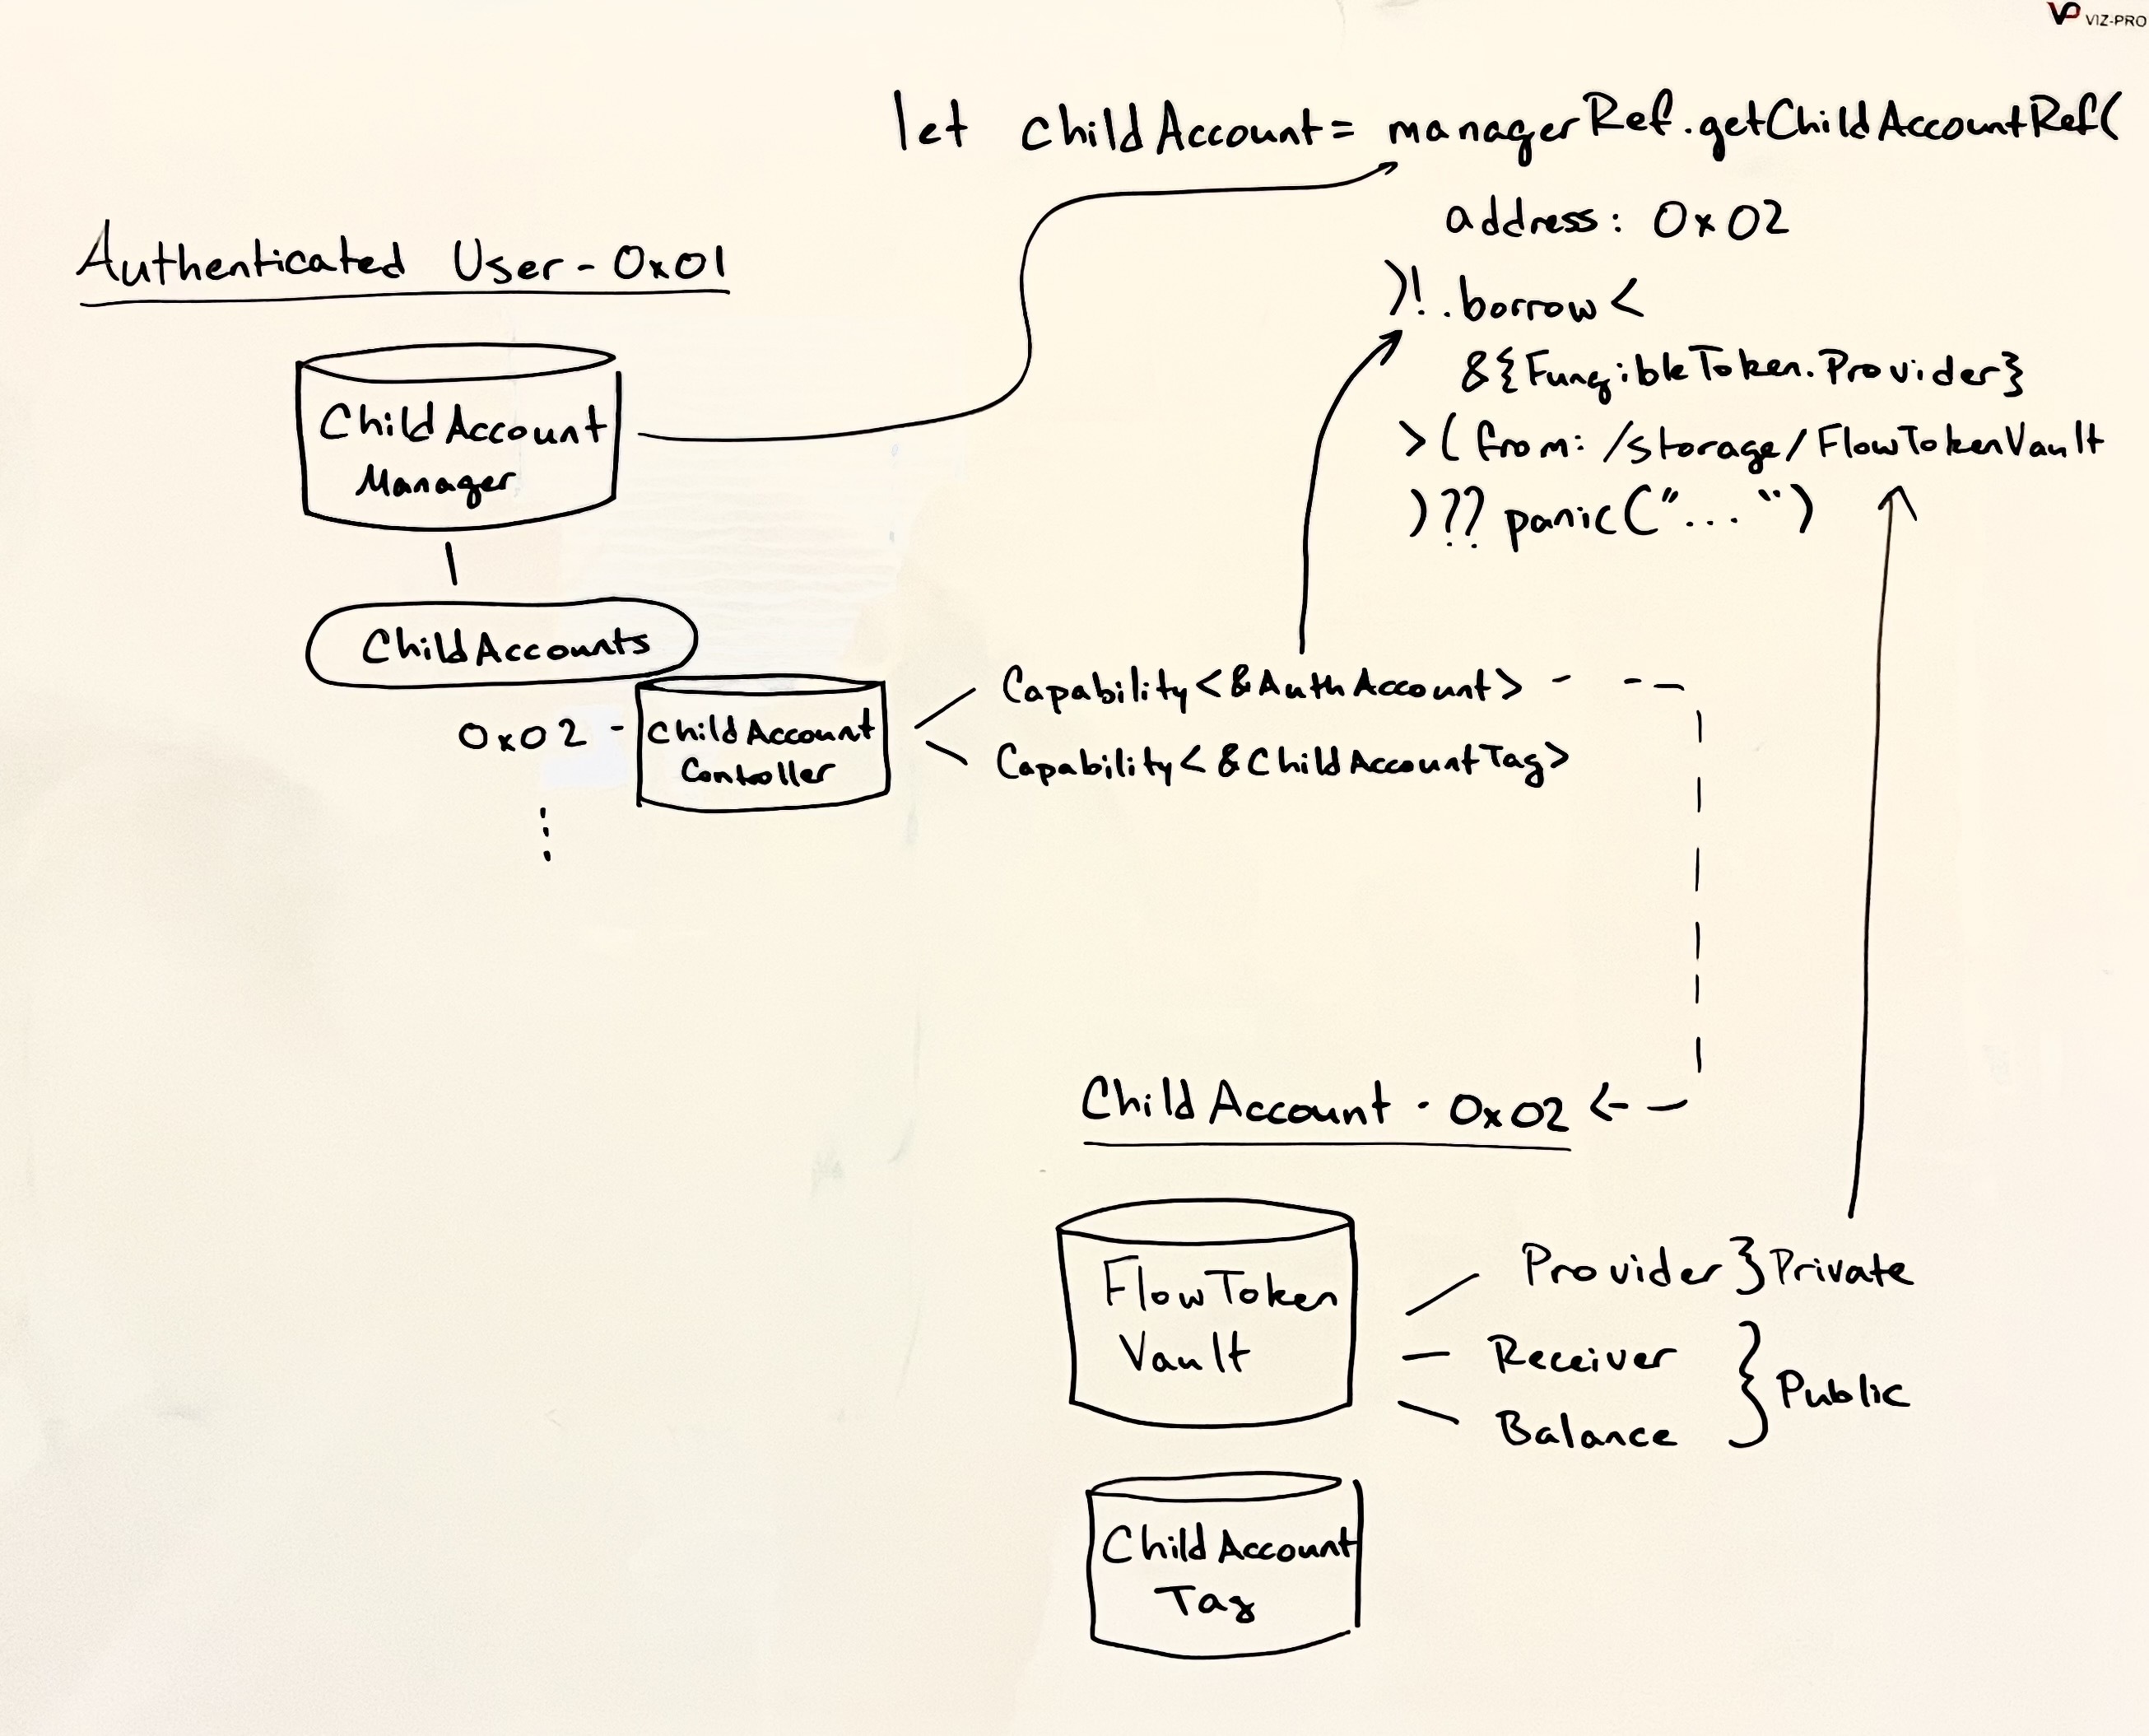 VP VIZ-PRO
let childAccount = managerRef.getChildAccountRef(
address: 0x02
)! .borrow<
&{FungibleToken.Provider}
>(from: /storage/FlowTokenVault
) ?? panic("...")
Authenticated User - 0x01
ChildAccount
Manager
ChildAccounts
0x02 -
ChildAccount
Controller
Capability<&AuthAccount>
Capability<&ChildAccountTag>
Child Account - 0x02
FlowToken
Vault
Provider } Private
Receiver
Balance
} Public
ChildAccount
Tag